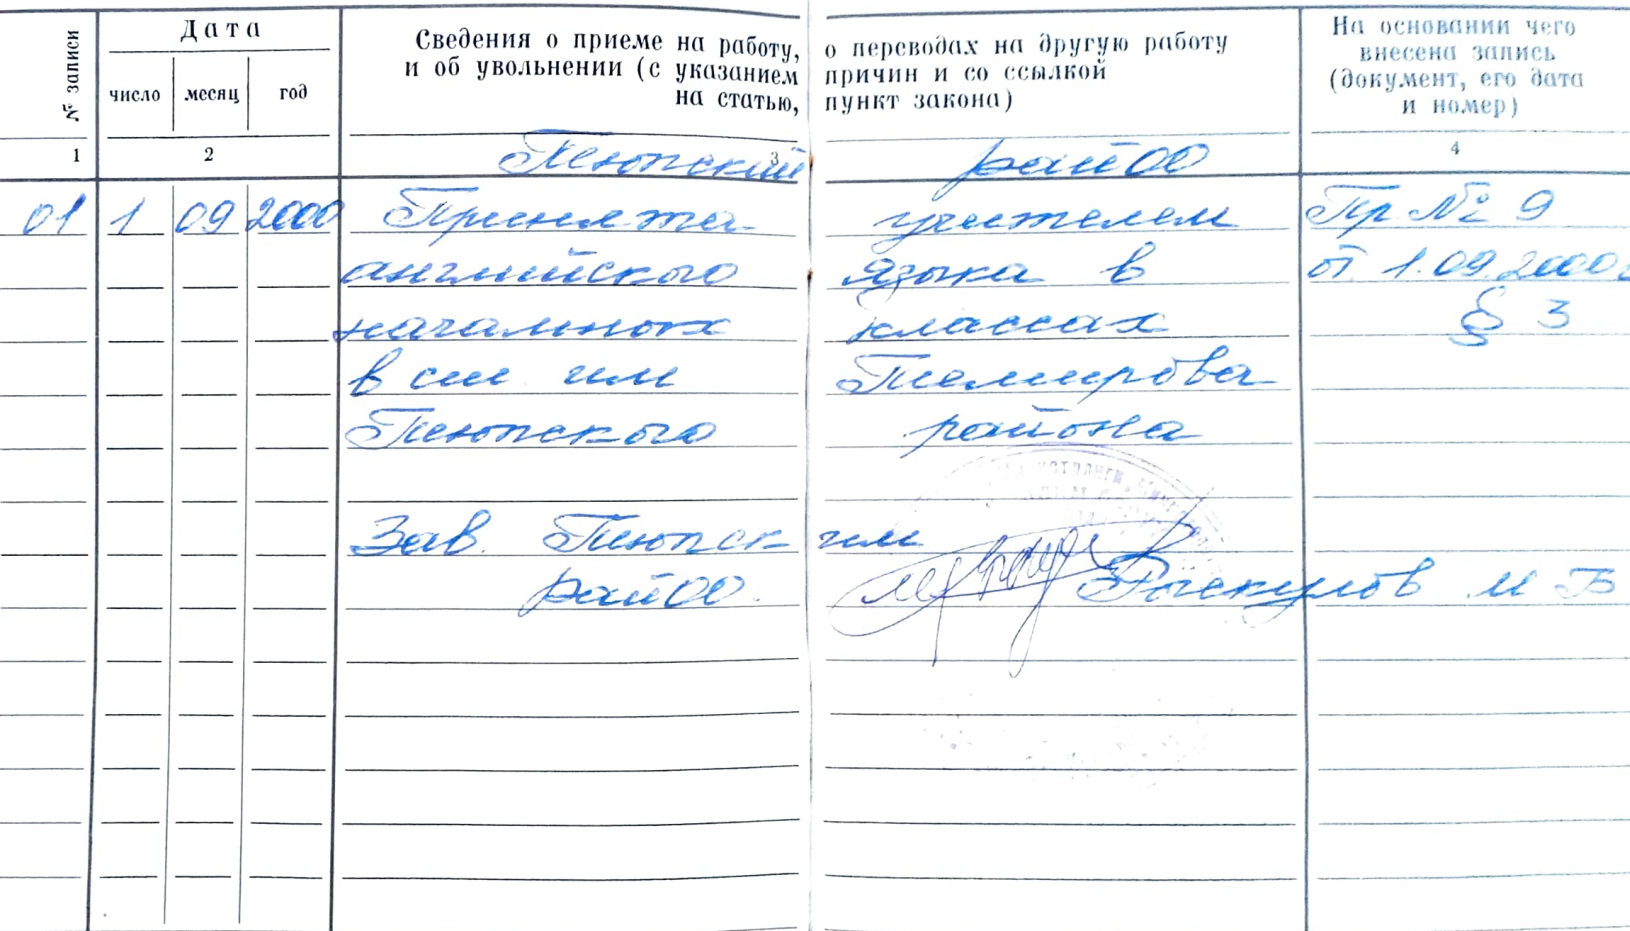 № записи
Дата
число месяц год
Сведения о приеме на работу, о переводах на другую работу
и об увольнении (с указанием причин и со ссылкой
на статью, пункт закона)
На основании чего
внесена запись
(документ, его дата
и номер)
1 2 3 4
Тюпский райОО
01 1 09 2000 Принята учителем Пр № 9
английского языка в от 1.09.2000г
начальных классах § 3
в сш им Темирова
Тюпского района
Зав. Тюпск им
райОО. Рыскулов М Б